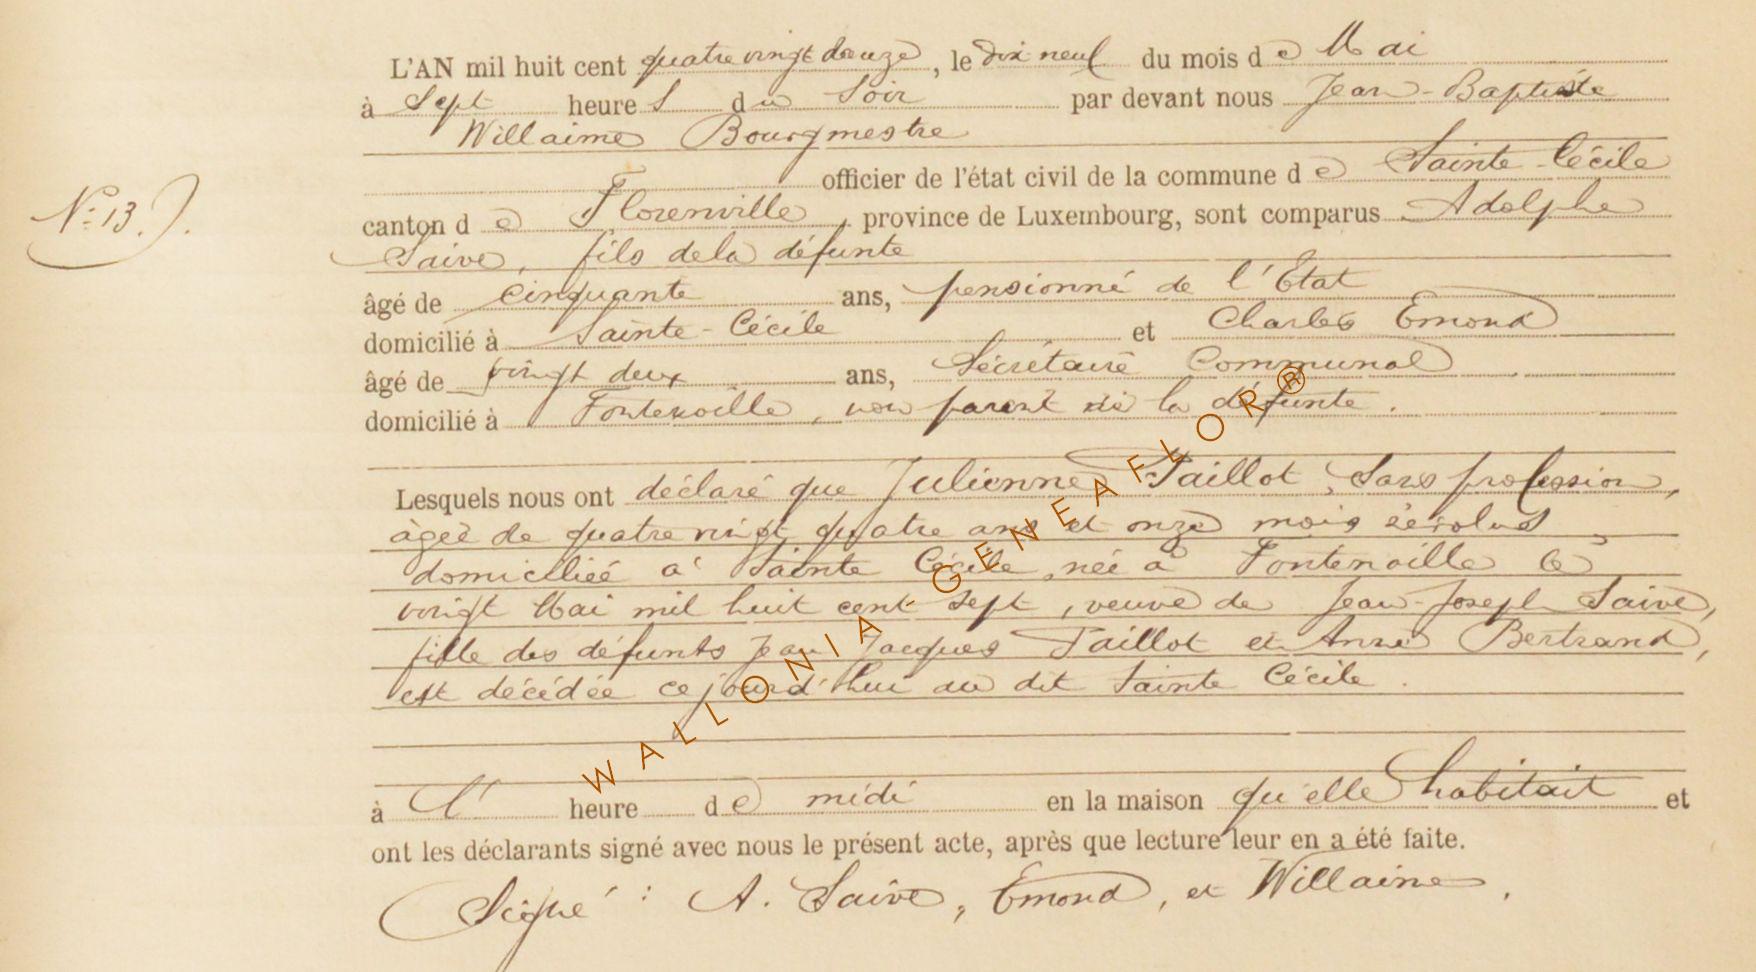 L'AN mil huit cent quatre vingt douze, le dix neuf du mois de Mai
à Sept heures du Soir par devant nous Jean-Baptiste
Willaime Bourgmestre
officier de l'état civil de la commune de Sainte-Cécile
N° 13.
canton de Florenville, province de Luxembourg, sont comparus Adolphe
Saive, fils de la défunte
âgé de cinquante ans, pensionné de l'Etat
domicilié à Sainte-Cécile et Charles Emond
âgé de vingt deux ans, Sécrétaire Communal
domicilié à Fontenoille, non parent de la défunte.
Lesquels nous ont déclaré que Julienne Taillot, Sans profession,
âgée de quatre vingt quatre ans et onze mois révolus,
domiciliée à Sainte Cécile, née à Fontenoille le
vingt Mai mil huit cent sept, veuve de Jean-Joseph Saive,
fille des défunts Jean Jacques Taillot et Anne Bertrand,
est décédée ce jourd'hui au dit Sainte Cécile.
à l' heure de midi en la maison qu'elle habitait et
ont les déclarants signé avec nous le présent acte, après que lecture leur en a été faite.
Signé : A. Saive, Emond, et Willaime.
WALLONIA.GENEAFLOR®